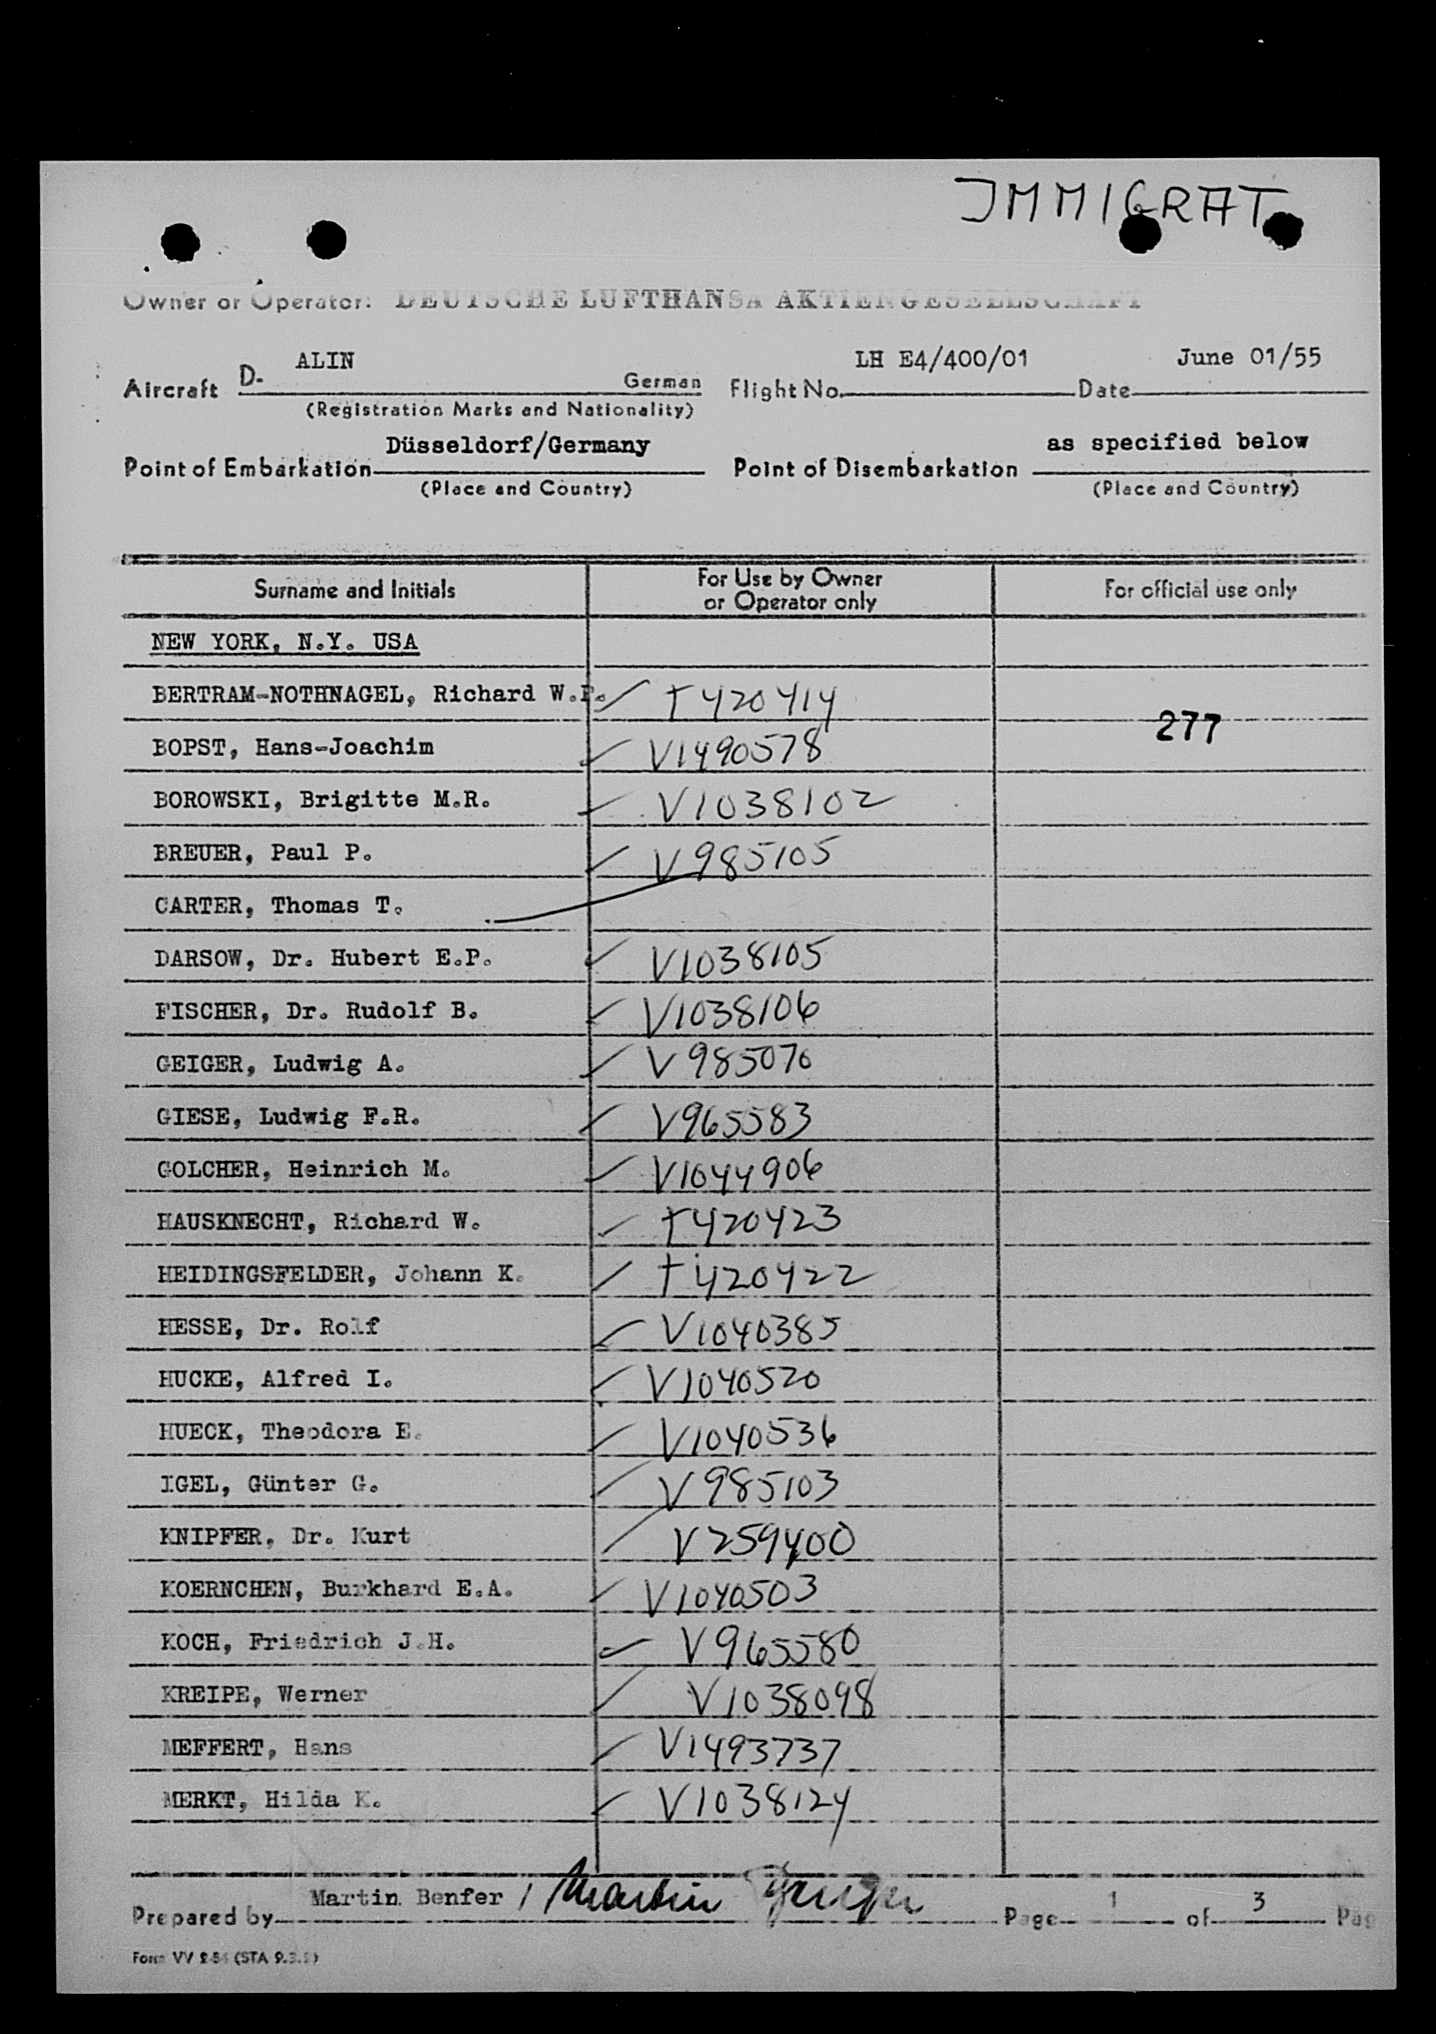 IMMIGRAT
Owner or Operator: DEUTSCHE LUFTHANSA AKTIENGESELLSCHAFT
Aircraft D- ALIN German Flight No. LH E4/400/01 Date June 01/55
(Registration Marks and Nationality)
Point of Embarkation Düsseldorf/Germany Point of Disembarkation as specified below
(Place and Country) (Place and Country)
Surname and Initials For Use by Owner or Operator only For official use only
NEW YORK, N.Y. USA
BERTRAM-NOTHNAGEL, Richard W.P. T420414
277
BOPST, Hans-Joachim V1490578
BOROWSKI, Brigitte M.R. V1038102
BREUER, Paul P. V985105
CARTER, Thomas T.
DARSOW, Dr. Hubert E.P. V1038105
FISCHER, Dr. Rudolf B. V1038106
GEIGER, Ludwig A. V985076
GIESE, Ludwig F.R. V965583
GOLCHER, Heinrich M. V1044906
HAUSKNECHT, Richard W. T420423
HEIDINGSFELDER, Johann K. T420422
HESSE, Dr. Rolf V1040385
HUCKE, Alfred I. V1040520
HUECK, Theodora E. V1040536
IGEL, Günter G. V985103
KNIPFER, Dr. Kurt V259400
KOERNCHEN, Burkhard E.A. V1040503
KOCH, Friedrich J.H. V965580
KREIPE, Werner V1038098
MEFFERT, Hans V1493737
MERKT, Hilda K. V1038124
Prepared by Martin Benfer / Martin Benfer Page 1 of 3 Pag
Form VV 2-54 (STA 9.3.2)